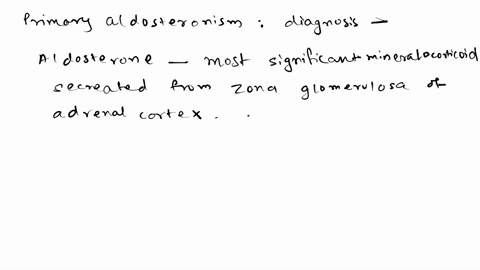 Primary aldosteronism : diagnosis -
Aldosterone - most significant mineralocorticoid
secreated from zona glomerulosa of
adrenal cortex .